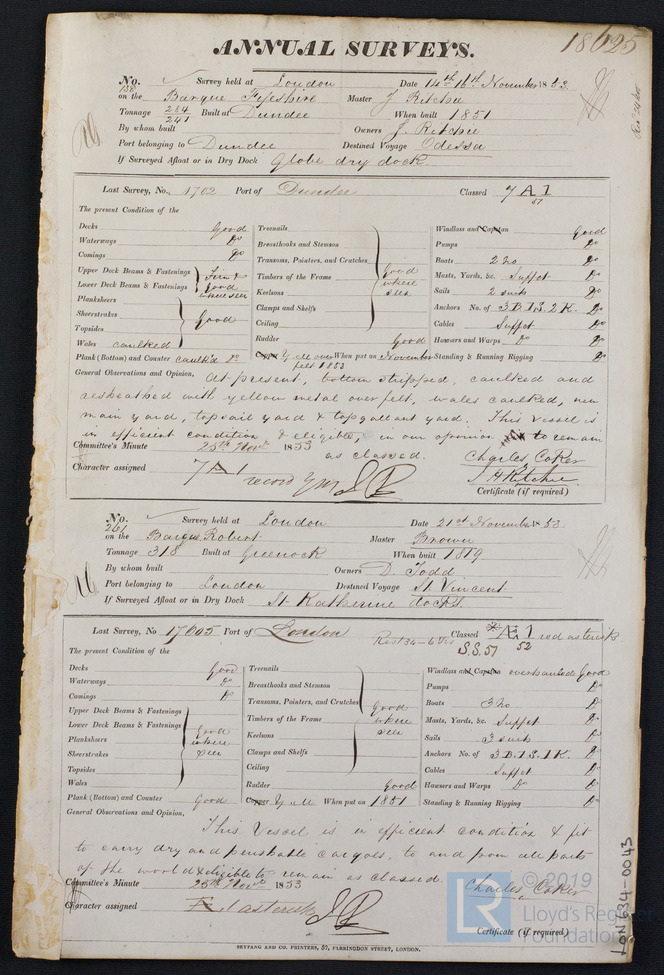 18025
ANNUAL SURVEYS.
No. 150 Survey held at London Date 14th 16th November 1853.
on the Barque Fifeshire Master J Ritchie
Tonnage 284 241 Built at Dundee When built 1851
By whom built Owners J. Ritchie
Port belonging to Dundee Destined Voyage Odessa
If Surveyed Afloat or in Dry Dock Globe dry dock
Last Survey, No. 1702 Port of Dundee Classed 7 A 1
51
The present Condition of the
Decks Good
Waterways Do
Comings Do
Upper Deck Beams & Fastenings
Lower Deck Beams & Fastenings good where seen
Planksheers
Sheerstrakes Good
Topsides
Wales caulked
Plank (Bottom) and Counter caulk'd Do
Treenails
Breasthooks and Stemson
Transoms, Pointers, and Crutches Good
Timbers of the Frame where
Keelsons seen
Clamps and Shelfs
Ceiling
Rudder Good
Copper Y. M over felt When put on November 1853
Windlass and Capstan Good
Pumps Do
Boats 2 No Do
Masts, Yards, &c. Suffct Do
Sails 2 suits Do
Anchors No. of 3 B. 1 S. 2 K. Do
Cables Suffct Do
Hawsers and Warps Do Do
Standing & Running Rigging Do
General Observations and Opinion, At present, bottom stripped, caulked and
resheathed with yellow metal over felt, wales caulked, new
main yard, topsail yard & topgallant yard. This vessel is
in efficient condition & eligible, in our opinion to remain
as classed.
Committee's Minute 25th Novr 1853
Charles Coker
J. H Ritchie
Character assigned 7 A 1
record YM
Certificate (if required)
No. 261 Survey held at London Date 21st November 1853.
on the Barque Robert Master Brown
Tonnage 318 Built at Greenock When built 1819
By whom built Owners D. Todd
Port belonging to London Destined Voyage St Vincent
If Surveyed Afloat or in Dry Dock St Katherine docks
Last Survey, No 17005 Port of London Classed Æ 1 red asterisk
S.S. 51 52
The present Condition of the
Decks Good
Waterways Do
Comings Do
Upper Deck Beams & Fastenings
Lower Deck Beams & Fastenings Good
Planksheers where
Sheerstrakes seen
Topsides
Wales
Plank (Bottom) and Counter Good
Treenails
Breasthooks and Stemson
Transoms, Pointers, and Crutches Good
Timbers of the Frame where
Keelsons seen
Clamps and Shelfs
Ceiling
Rudder Good
Copper Y. M When put on 1851
Windlass and Capstan overhauled Good
Pumps Do
Boats 3 No Do
Masts, Yards, &c. Suffct Do
Sails 3 suits Do
Anchors No. of 3 B. 1 S. 1 K. Do
Cables Suffct Do
Hawsers and Warps Do Do
Standing & Running Rigging Do
General Observations and Opinion,
This Vessel is in efficient condition & fit
to carry dry and perishable cargoes, to and from all parts
of the world & eligible to remain as classed.
Committee's Minute 25th Novr 1853
Charles Coker
Character assigned Æ 1 asterisk
Certificate (if required)
SEYFANG AND CO. PRINTERS, 57, FARRINGDON STREET, LONDON.
LON 634-0043
© 2019
LR Lloyd's Register
Foundation